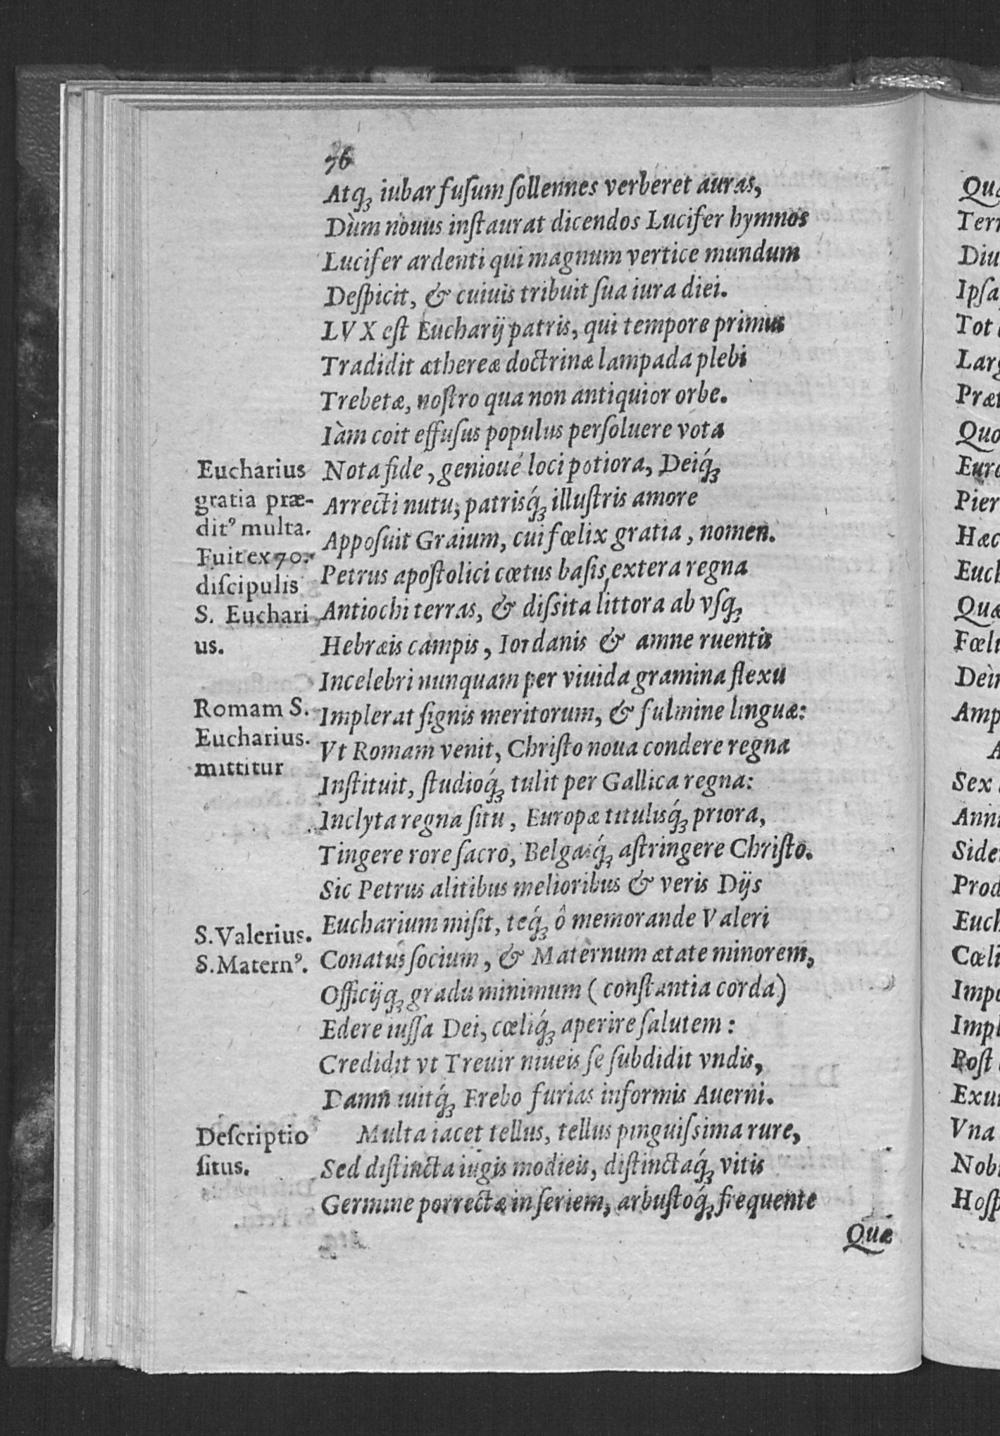 76
Atq; iubar fuſum ſollennes verberet auras,
Dùm nouus inſtaurat dicendos Lucifer hymnos
Lucifer ardenti qui magnum vertice mundum
Deſpicit, & cuiuis tribuit ſua iura diei.
LVX eſt Eucharij patris, qui tempore primus
Tradidit æthereæ doctrinæ lampada plebi
Trebetæ, noſtro qua non antiquior orbe.
Iàm coit effuſus populus perſoluere vota
Nota fide, genioué loci potiora, Deiq́;
Arrecti nutu; patrisq́; illuſtris amore
Appoſuit Graium, cui fœlix gratia, nomen.
Petrus apoſtolici cœtus baſis, extera regna
Antiochi terras, & diſsita littora ab vſq;
Hebræis campis, Iordanis & amne ruentis
Incelebri nunquam per viuida gramina flexu
Implerat ſignis meritorum, & fulmine linguæ:
Vt Romam venit, Chriſto noua condere regna
Inſtituit, ſtudioq́; tulit per Gallica regna:
Inclyta regna ſitu, Europæ titulisq́; priora,
Tingere rore ſacro, Belgasq́; aſtringere Chriſto.
Sic Petrus alitibus melioribus & veris Dijs
Eucharium miſit, teq́; ô memorande Valeri
Conatus ſocium, & Maternum ætate minorem,
Officijq; gradu minimum (conſtantia corda)
Edere iuſſa Dei, cœliq́; aperire ſalutem:
Credidit vt Treuir niueis ſe ſubdidit vndis,
Damnauitq́; Erebo furias informis Auerni.
Multa iacet tellus, tellus pinguiſsima rure,
Sed diſtincta iugis modicis, diſtinctaq́; vitis
Germine porrectæ in ſeriem, arbuſtoq́; frequente
Quæ
Eucharius
gratia præ-
ditꝰ multa.
Fuit ex 70.
diſcipulis
S. Euchari
us.
Romam S.
Eucharius.
mittitur
S. Valerius.
S. Maternꝰ.
Deſcriptio
ſitus.
Terr
Diu
Ipſa
Tot
Larg
Præt
Quo
Euro
Pier
Hæc
Euch
Quæ
Fœli
Dein
Amp
A
Sex
Anni
Side
Prod
Euch
Cœli
Impe
Impl
Poſt
Exui
Vna
Nobi
Hoſp